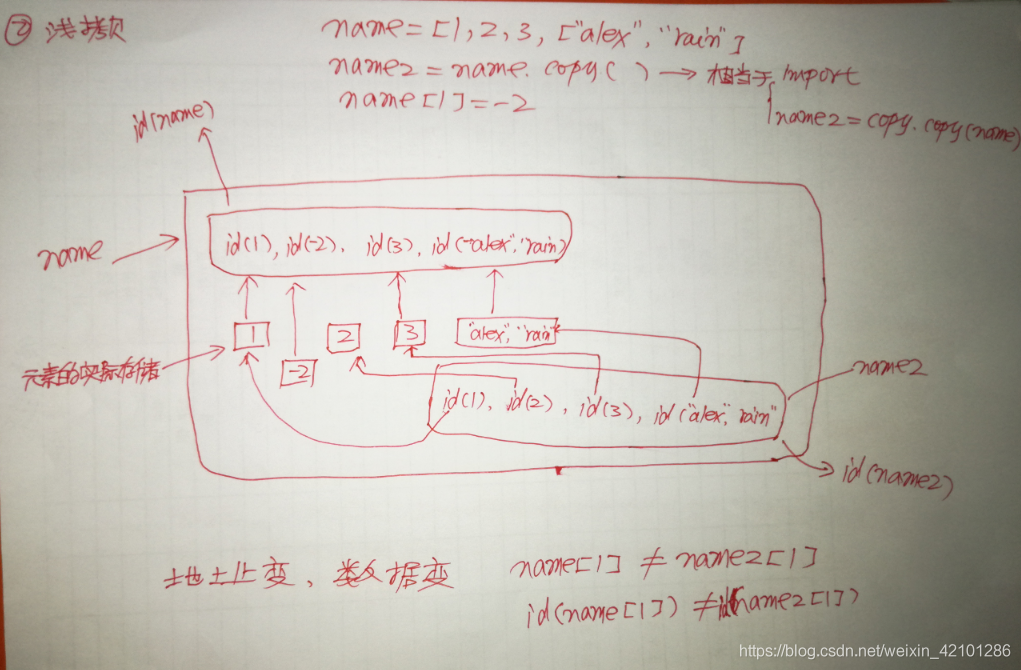 ② 浅拷贝
name = [1, 2, 3, ["alex", "rain"]
name2 = name. copy( ) → 相当于 import
name2 = copy. copy(name)
name[1] = -2
id(name)
name
id(1), id(-2), id(3), id("alex", "rain)
1 2 3 "alex", "rain"
元素的实际存储
-2
name2
id(1), id(2), id(3), id("alex", rain"
id(name2)
地址变、数据变
name[1] ≠ name2[1]
id(name[1]) ≠ id(name2[1])
https://blog.csdn.net/weixin_42101286